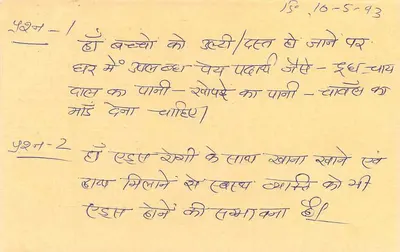 दि. 10-5-93
प्रश्न-1
हाँ बच्चो को उल्टी/दस्त हो जाने पर
घर में उपलब्ध पेय पदार्थ जैसे - दूध-चाय
दाल का पानी - खोपड़े का पानी - चावल का
माँड देना चाहिए।
प्रश्न-2
हाँ एड्स रोगी के साथ खाना खाने एवं
हाथ मिलाने से स्वस्थ व्यक्ति को भी
एड्स होने की सम्भावना है।